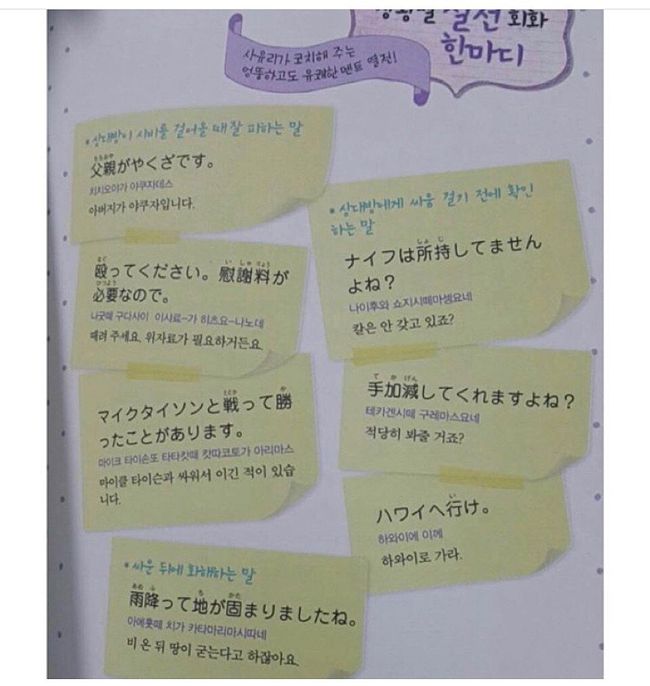 상황별 실전 회화
한마디
사유리가 코치해 주는
엉뚱하고도 유쾌한 멘트 열전!
• 상대방이 시비를 걸어올 때 잘 피하는 말
父親がやくざです。
치치오야가 야쿠자데스
아버지가 야쿠자입니다.
殴ってください。慰謝料が
必要なので。
나굿떼 구다사이 이샤료-가 히츠요-나노데
때려 주세요. 위자료가 필요하거든요.
マイクタイソンと戦って勝
ったことがあります。
마이크 타이손또 타타캇떼 캇따코토가 아리마스
마이클 타이슨과 싸워서 이긴 적이 있습
니다.
• 상대방에게 싸움 걸기 전에 확인
하는 말
ナイフは所持してません
よね？
나이후와 쇼지시떼마셍요네
칼은 안 갖고 있죠?
手加減してくれますよね？
테카겐시떼 구레마스요네
적당히 봐줄 거죠?
ハワイへ行け。
하와이에 이케
하와이로 가라.
• 싸운 뒤에 화해하는 말
雨降って地が固まりましたね。
아메훗떼 치가 카타마리마시따네
비 온 뒤 땅이 굳는다고 하잖아요.